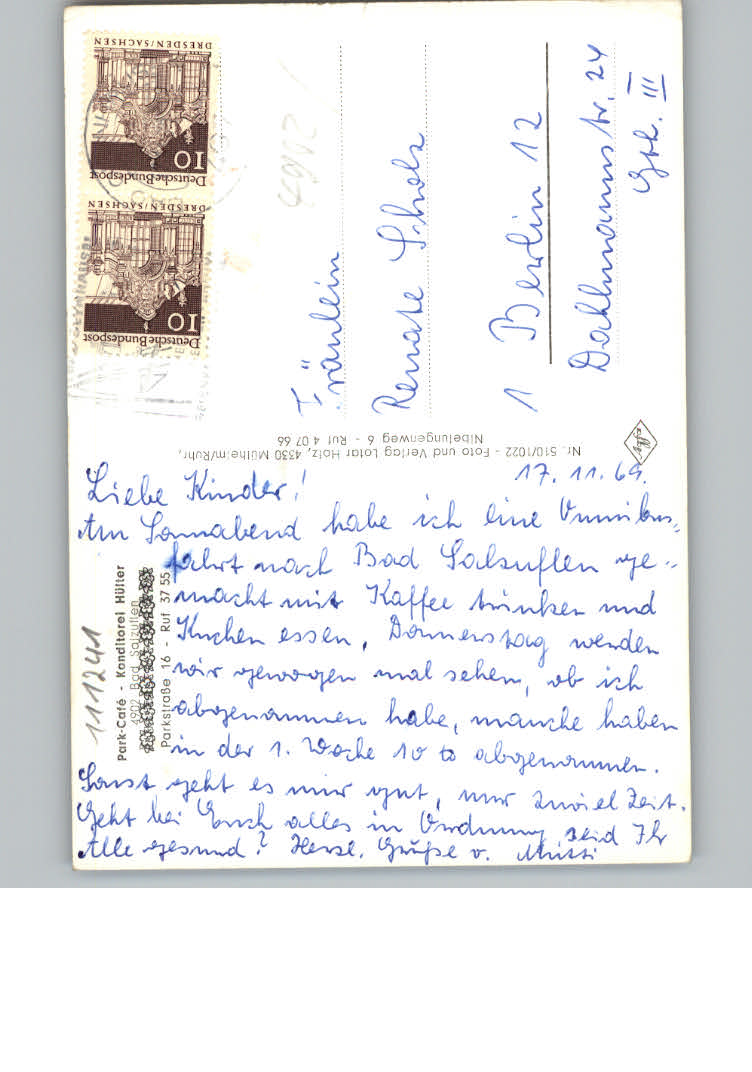 17. 11. 69.
Liebe Kinder!
Am Sonnabend habe ich eine Omnibus-
fahrt nach Bad Salzuflen ge-
macht mit Kaffee trinken und
Kuchen essen, Donnerstag werden
wir gewogen mal sehen, ob ich
abgenommen habe, manche haben
in der 1. Woche 10 abgenommen.
Sonst geht es mir gut, nur zuviel Zeit.
Geht bei Euch alles in Ordnung seid Ihr
Alle gesund? Herzl. Grüße v. Mutti
Fräulein
Renate Scholz
1 Berlin 12
Dahlmannstr. 24
Gth. III
Park-Café - Konditorei Hülter
4902 Bad Salzuflen
Parkstraße 16 - Ruf 37 55
111241
Nr. 510/1022 - Foto und Verlag Lotar Holz, 4330 Mülheim/Ruhr,
Nibelungenweg 6 - Ruf 4 07 66
Deutsche Bundespost
10
DRESDEN/SACHSEN
Deutsche Bundespost
10
DRESDEN/SACHSEN